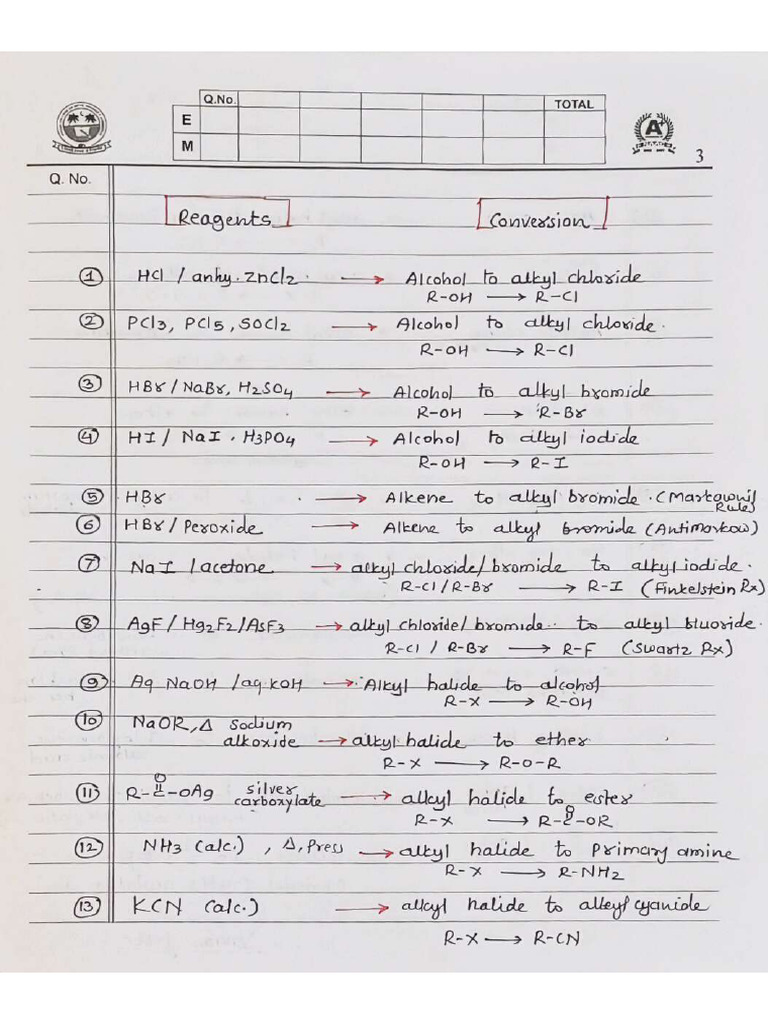 Q.No. TOTAL
E
M
3
Q. No.
Reagents Conversion
① HCl / anhy. ZnCl2 → Alcohol to alkyl chloride
R-OH → R-Cl
② PCl3, PCl5, SOCl2 → Alcohol to alkyl chloride.
R-OH → R-Cl
③ HBr / NaBr, H2SO4 → Alcohol to alkyl bromide
R-OH → R-Br
④ HI / NaI . H3PO4 → Alcohol to alkyl iodide
R-OH → R-I
⑤ HBr → Alkene to alkyl bromide. (Markawnif
Rule)
⑥ HBr / Peroxide → Alkene to alkyl bromide (Antimarkow)
⑦ NaI / acetone → alkyl chloride/bromide to alkyl iodide.
R-Cl / R-Br → R-I (Finkelstein Rx)
⑧ AgF / Hg2F2 / AsF3 → alkyl chloride/bromide.. to alkyl fluoride.
R-Cl / R-Br → R-F (Swartz Rx)
⑨ Aq NaOH / aq KOH → Alkyl halide to alcohol
R-X → R-OH
⑩ NaOR, Δ sodium
alkoxide → alkyl halide to ether
R-X → R-O-R
O
⑪ R-C-OAg silver
carboxylate → alkyl halide to ester
O
R-X → R-C-OR
⑫ NH3 (alc.) , Δ, Press → alkyl halide to Primary amine
R-X → R-NH2
⑬ KCN (alc.) → alkyl halide to alkyl cyanide
R-X → R-CN